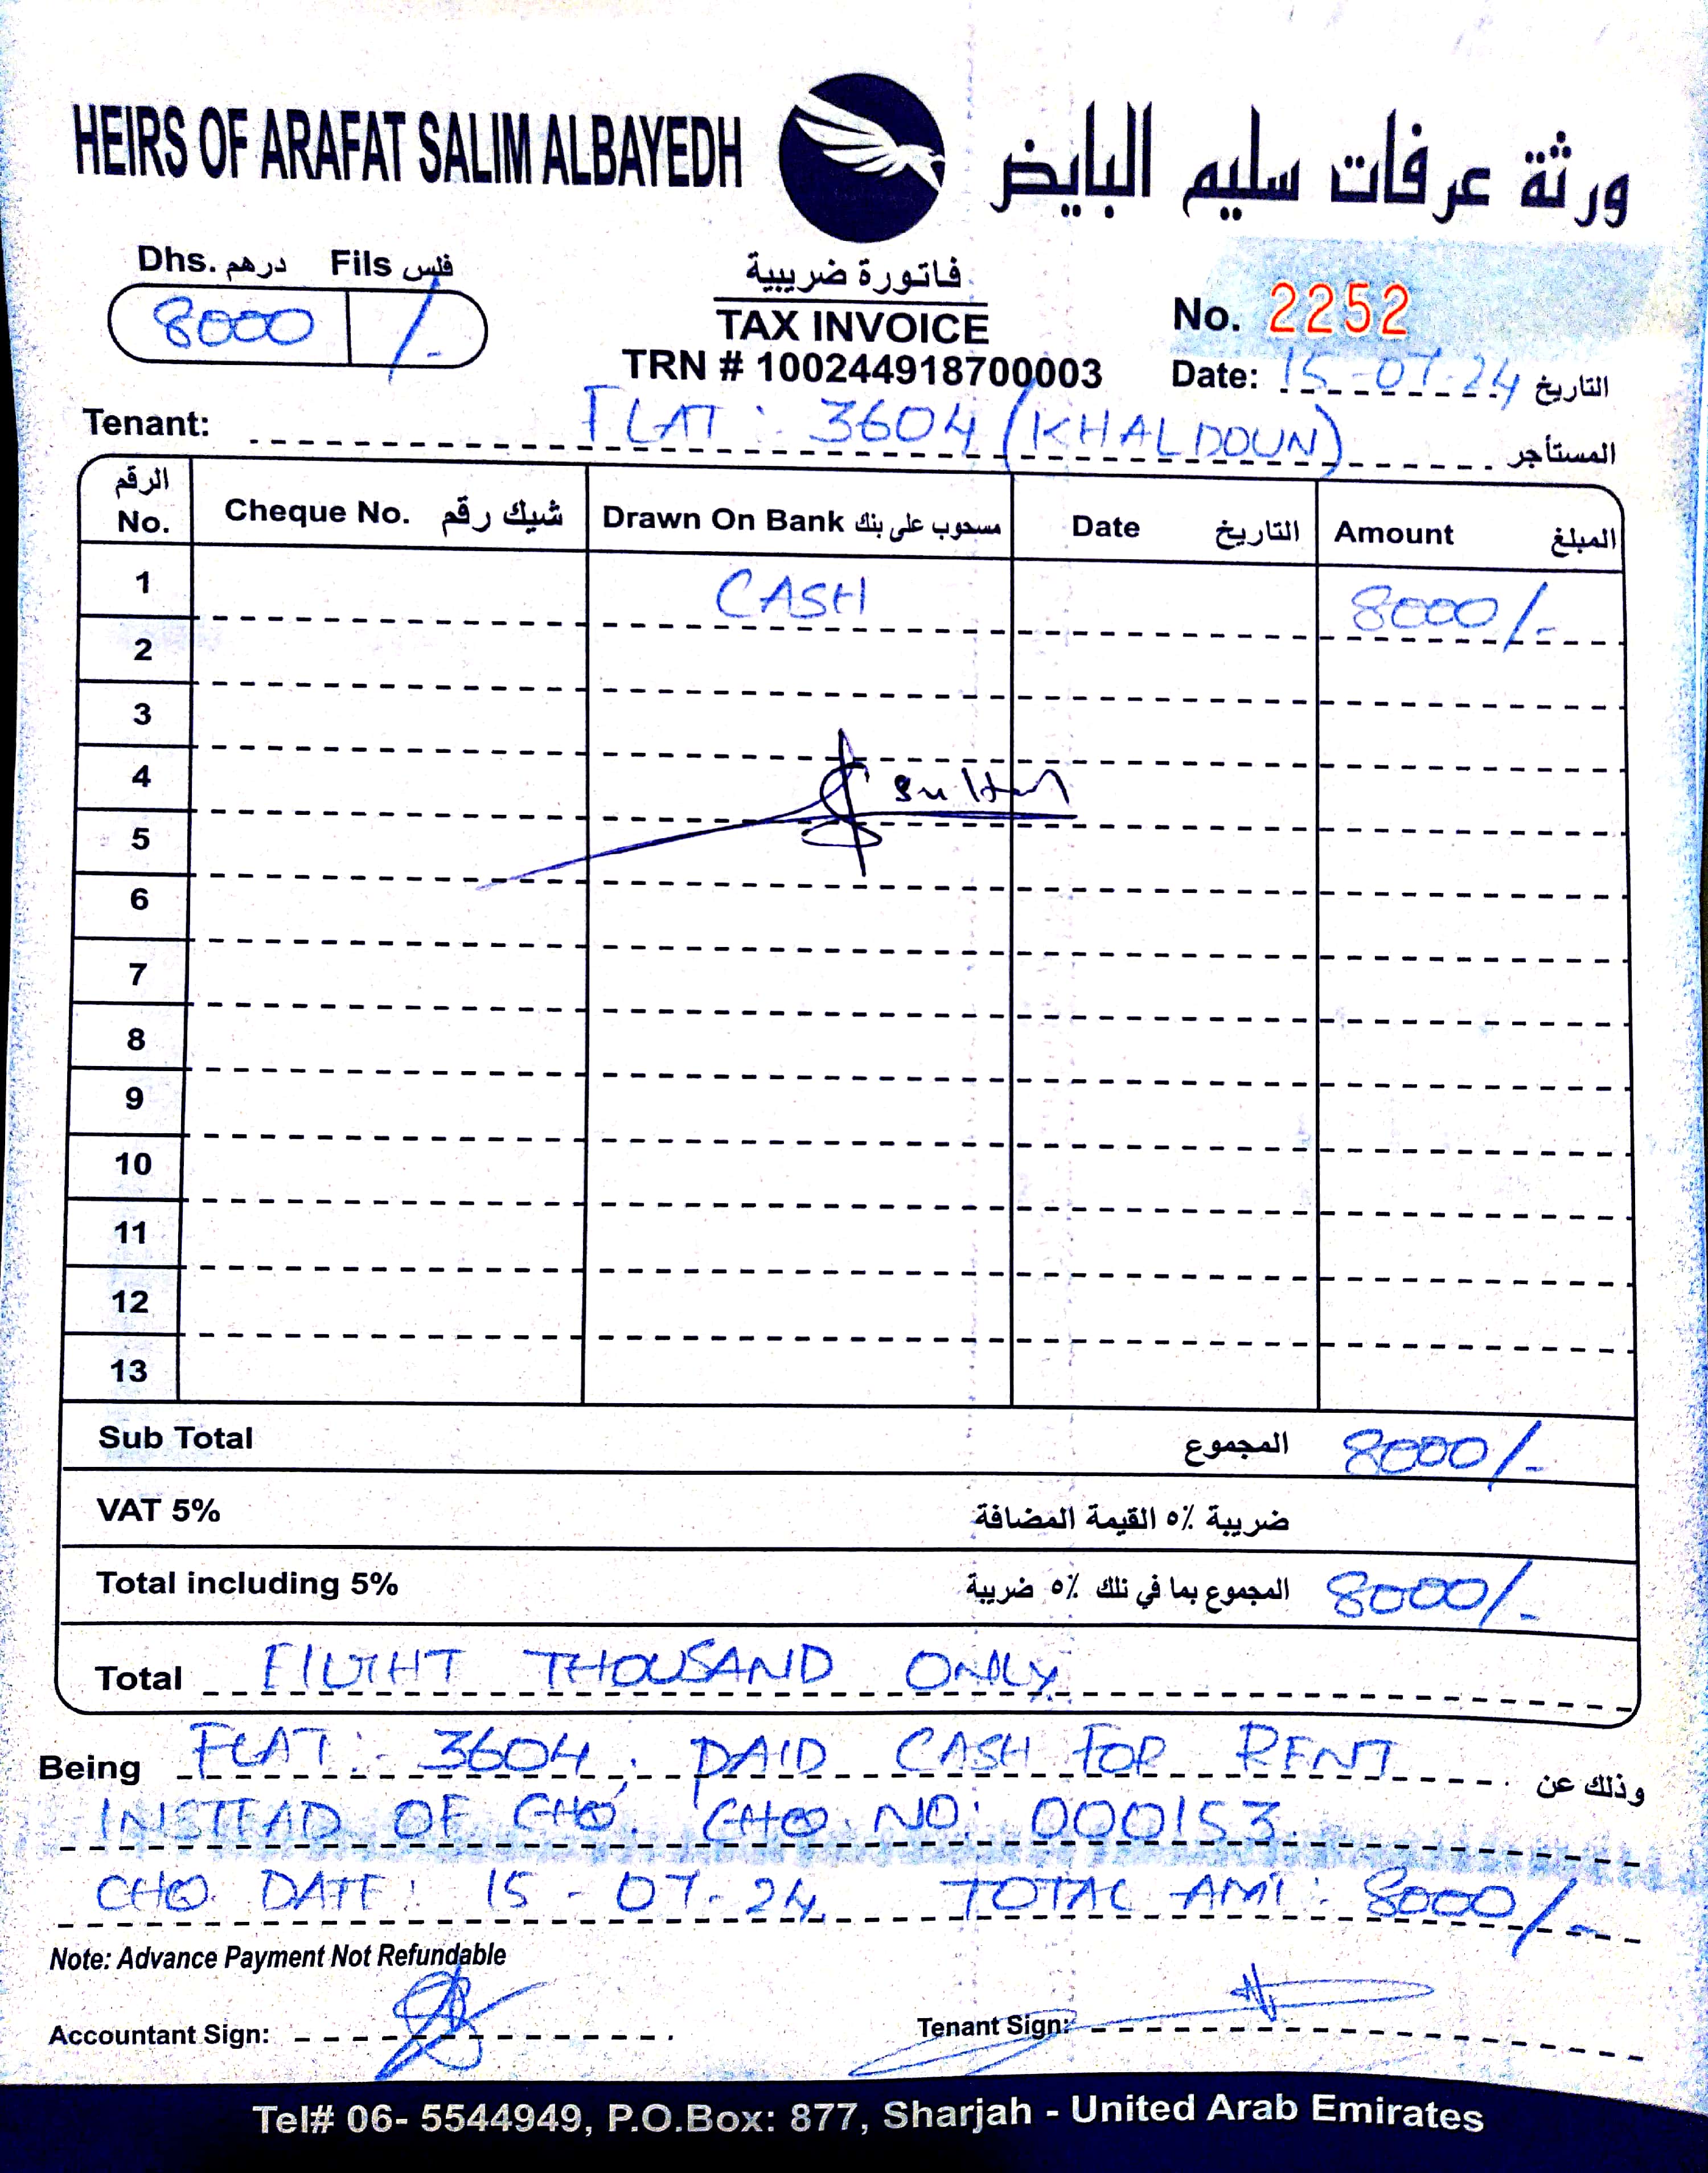 HEIRS OF ARAFAT SALIM ALBAYEDH ورثة عرفات سليم البايض
Dhs. درهم Fils فلس
8000 /-
فاتورة ضريبية
TAX INVOICE
TRN # 100244918700003
No. 2252
Date: 15-07-24 التاريخ
Tenant: FLAT: 3604 (KHALDOUN) المستأجر
الرقم No. Cheque No. شيك رقم Drawn On Bank مسحوب على بنك Date التاريخ Amount المبلغ
1 CASH 8000/-
2
3
4 Sultan
5
6
7
8
9
10
11
12
13
Sub Total المجموع 8000/-
VAT 5% ضريبة ٥٪ القيمة المضافة
Total including 5% المجموع بما في ذلك ٥٪ ضريبة 8000/-
Total EIGHT THOUSAND ONLY
Being FLAT: 3604, PAID CASH FOR RENT وذلك عن
INSTEAD OF CHQ. CHQ NO: 000153
CHQ. DATE: 15-07-24. TOTAL AMT: 8000/-
Note: Advance Payment Not Refundable
Accountant Sign: Tenant Sign:
Tel# 06- 5544949, P.O.Box: 877, Sharjah - United Arab Emirates